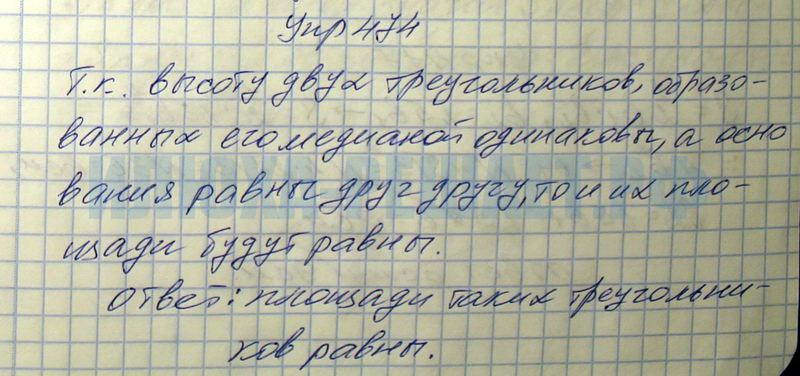 Упр 474
Т.к. высоту двух треугольников, образо-
ванных его медианой одинаковы, а осно
вания равны друг другу, то и их пло-
щади будут равны.
Ответ: площади таких треугольни-
ков равны.